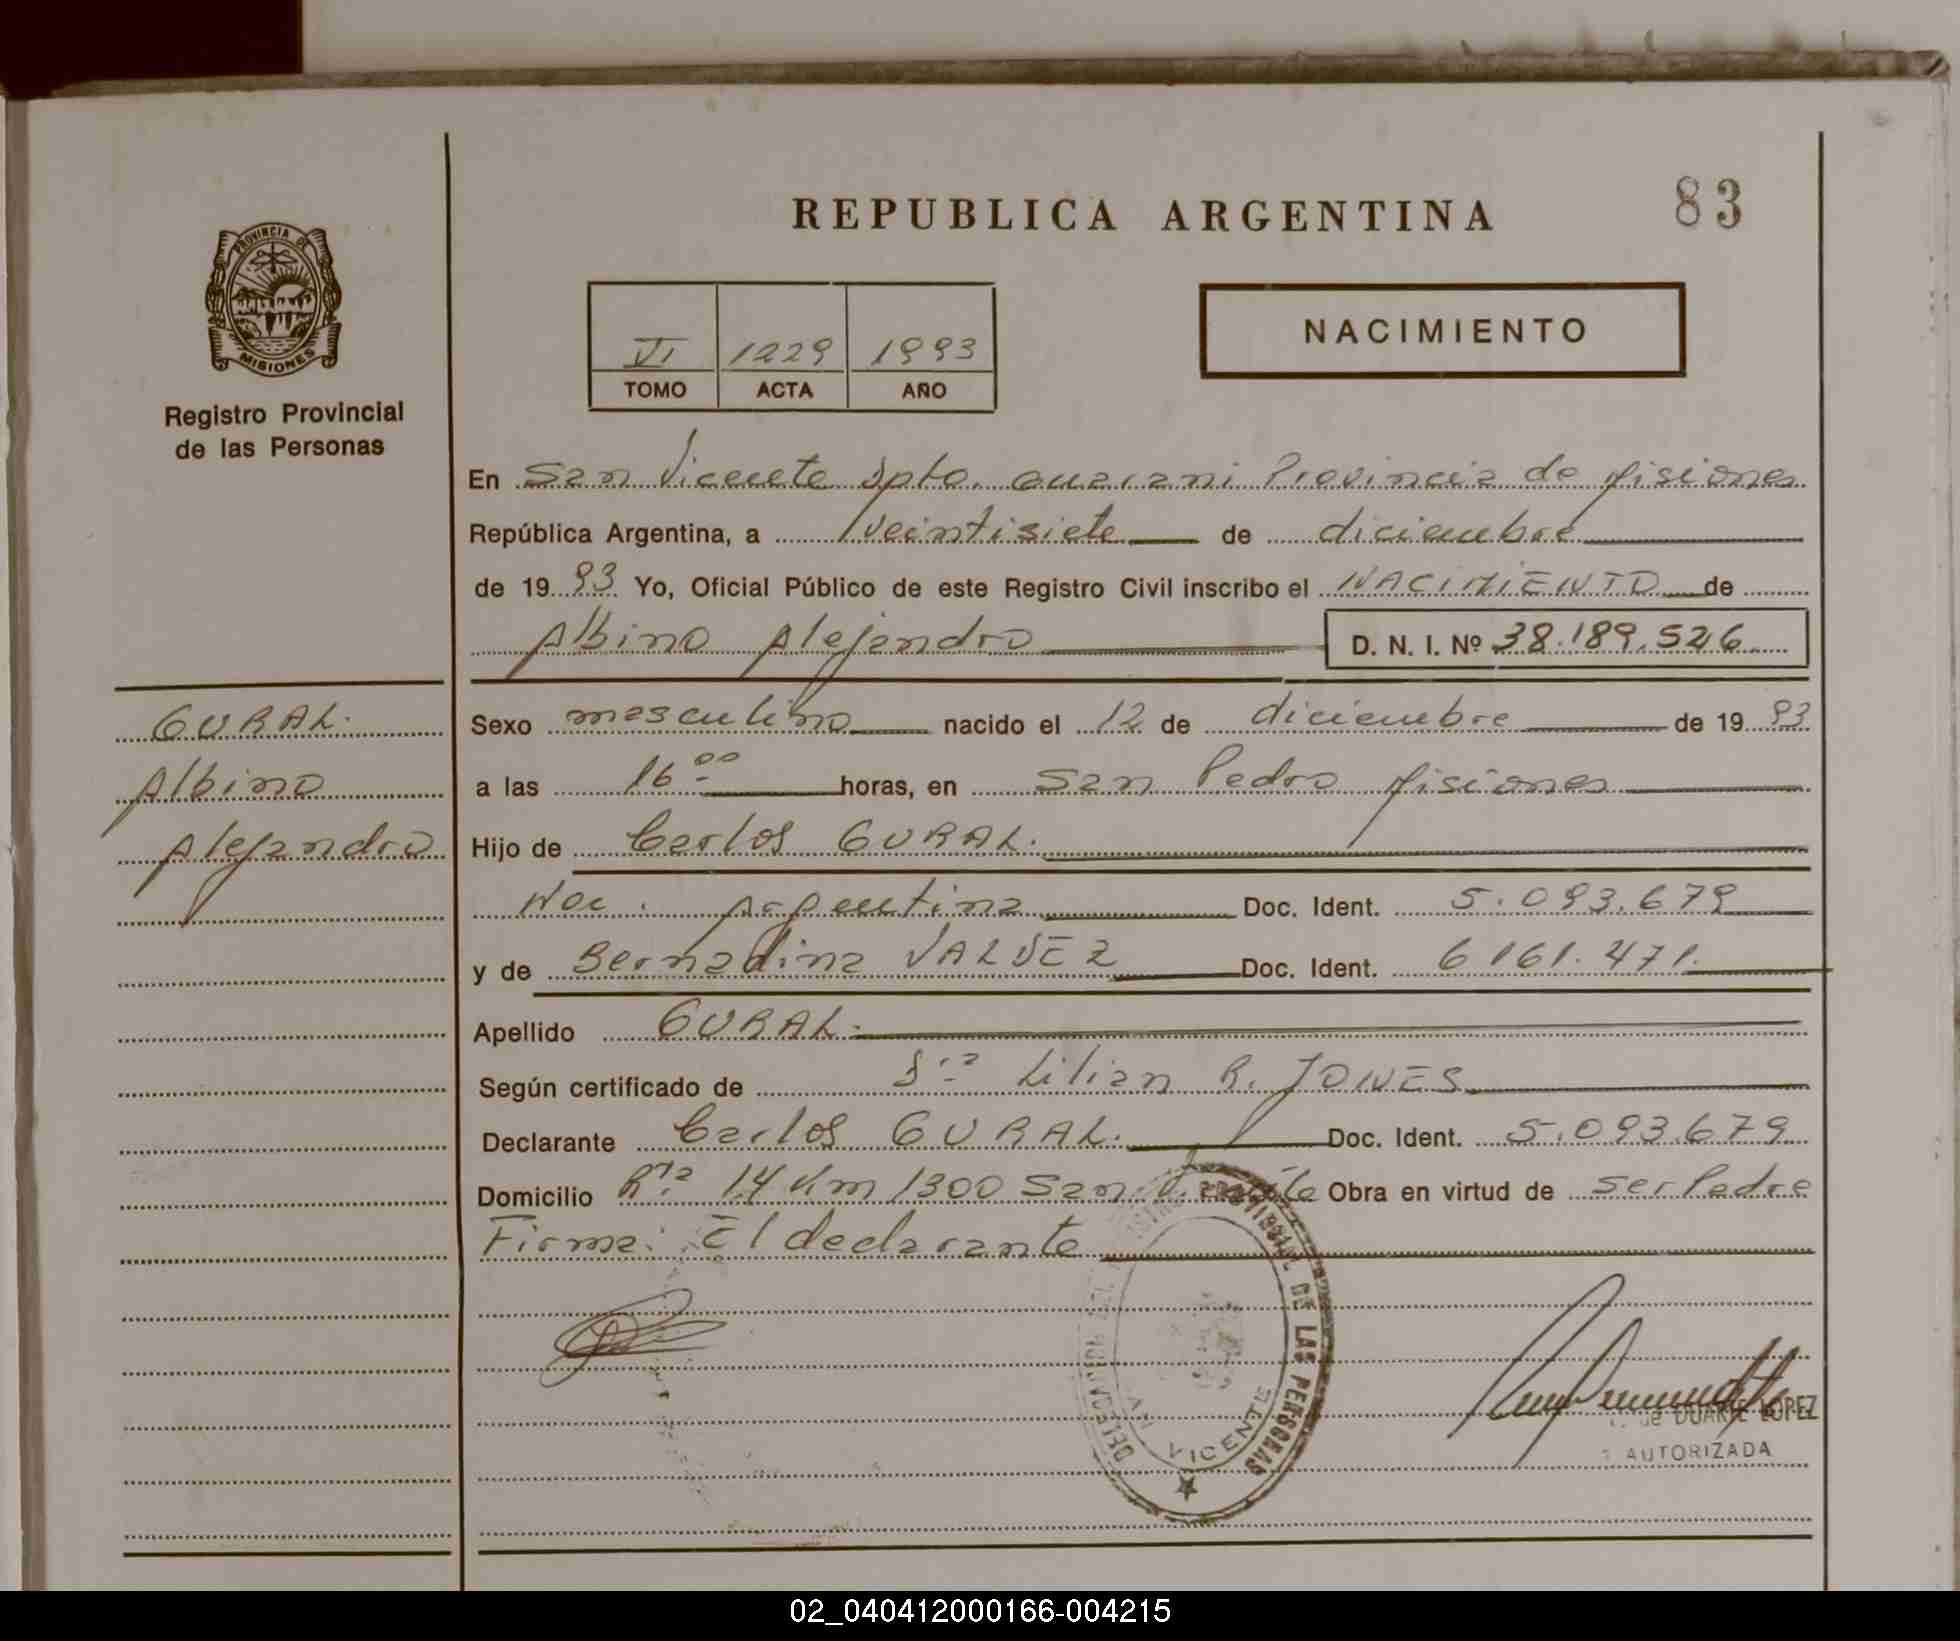 REPUBLICA ARGENTINA
83
PROVINCIA DE
MISIONES
Registro Provincial
de las Personas
VI 1229 1993
TOMO ACTA AÑO
NACIMIENTO
En San Vicente Dpto. Guarani Provincia de Misiones
República Argentina, a veintisiete de diciembre
de 1993 Yo, Oficial Público de este Registro Civil inscribo el NACIMIENTO de
Albino Alejandro D. N. I. Nº 38.189.526
GURAL.
Albino
Alejandro
Sexo masculino nacido el 12 de diciembre de 1993
a las 16 00 horas, en San Pedro Misiones
Hijo de Carlos GURAL.
Nac. Argentina Doc. Ident. 5.093.679
y de Bernadina VALDEZ Doc. Ident. 6161.471.
Apellido GURAL.
Según certificado de Dra Lilian R. JONES
Declarante Carlos GURAL. Doc. Ident. 5.093.679
Domicilio Rta 14 Km 1300 San Vicente Obra en virtud de ser Padre
Firma: El declarante
DELEGACION DEL REGISTRO PROVINCIAL DE LAS PERSONAS
SAN VICENTE
DUARTE LOPEZ
AUTORIZADA
02_040412000166-004215